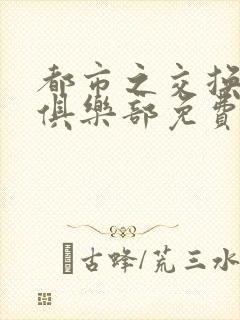 都市之交换
俱樂部免費
古蜂/荒三水